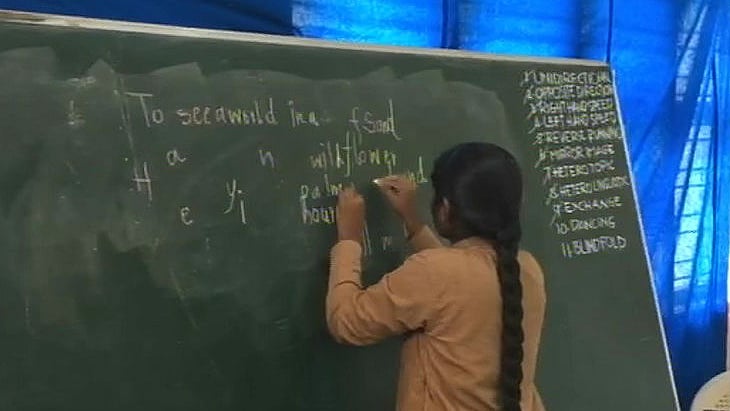 To see a world in a f Sand
a n wildflower
H palm nd
e y i hour
ll m
1. UNIDIRECTIONAL
2. OPPOSITE DIRECTION
3. RIGHT HAND SPEED
4. LEFT HAND SPEED
5. REVERSE RUNNING
6. MIRROR IMAGE
7. HETEROTOPIC
8. HETEROLINGUISTIC
9. EXCHANGE
10. DANCING
11. BLINDFOLD